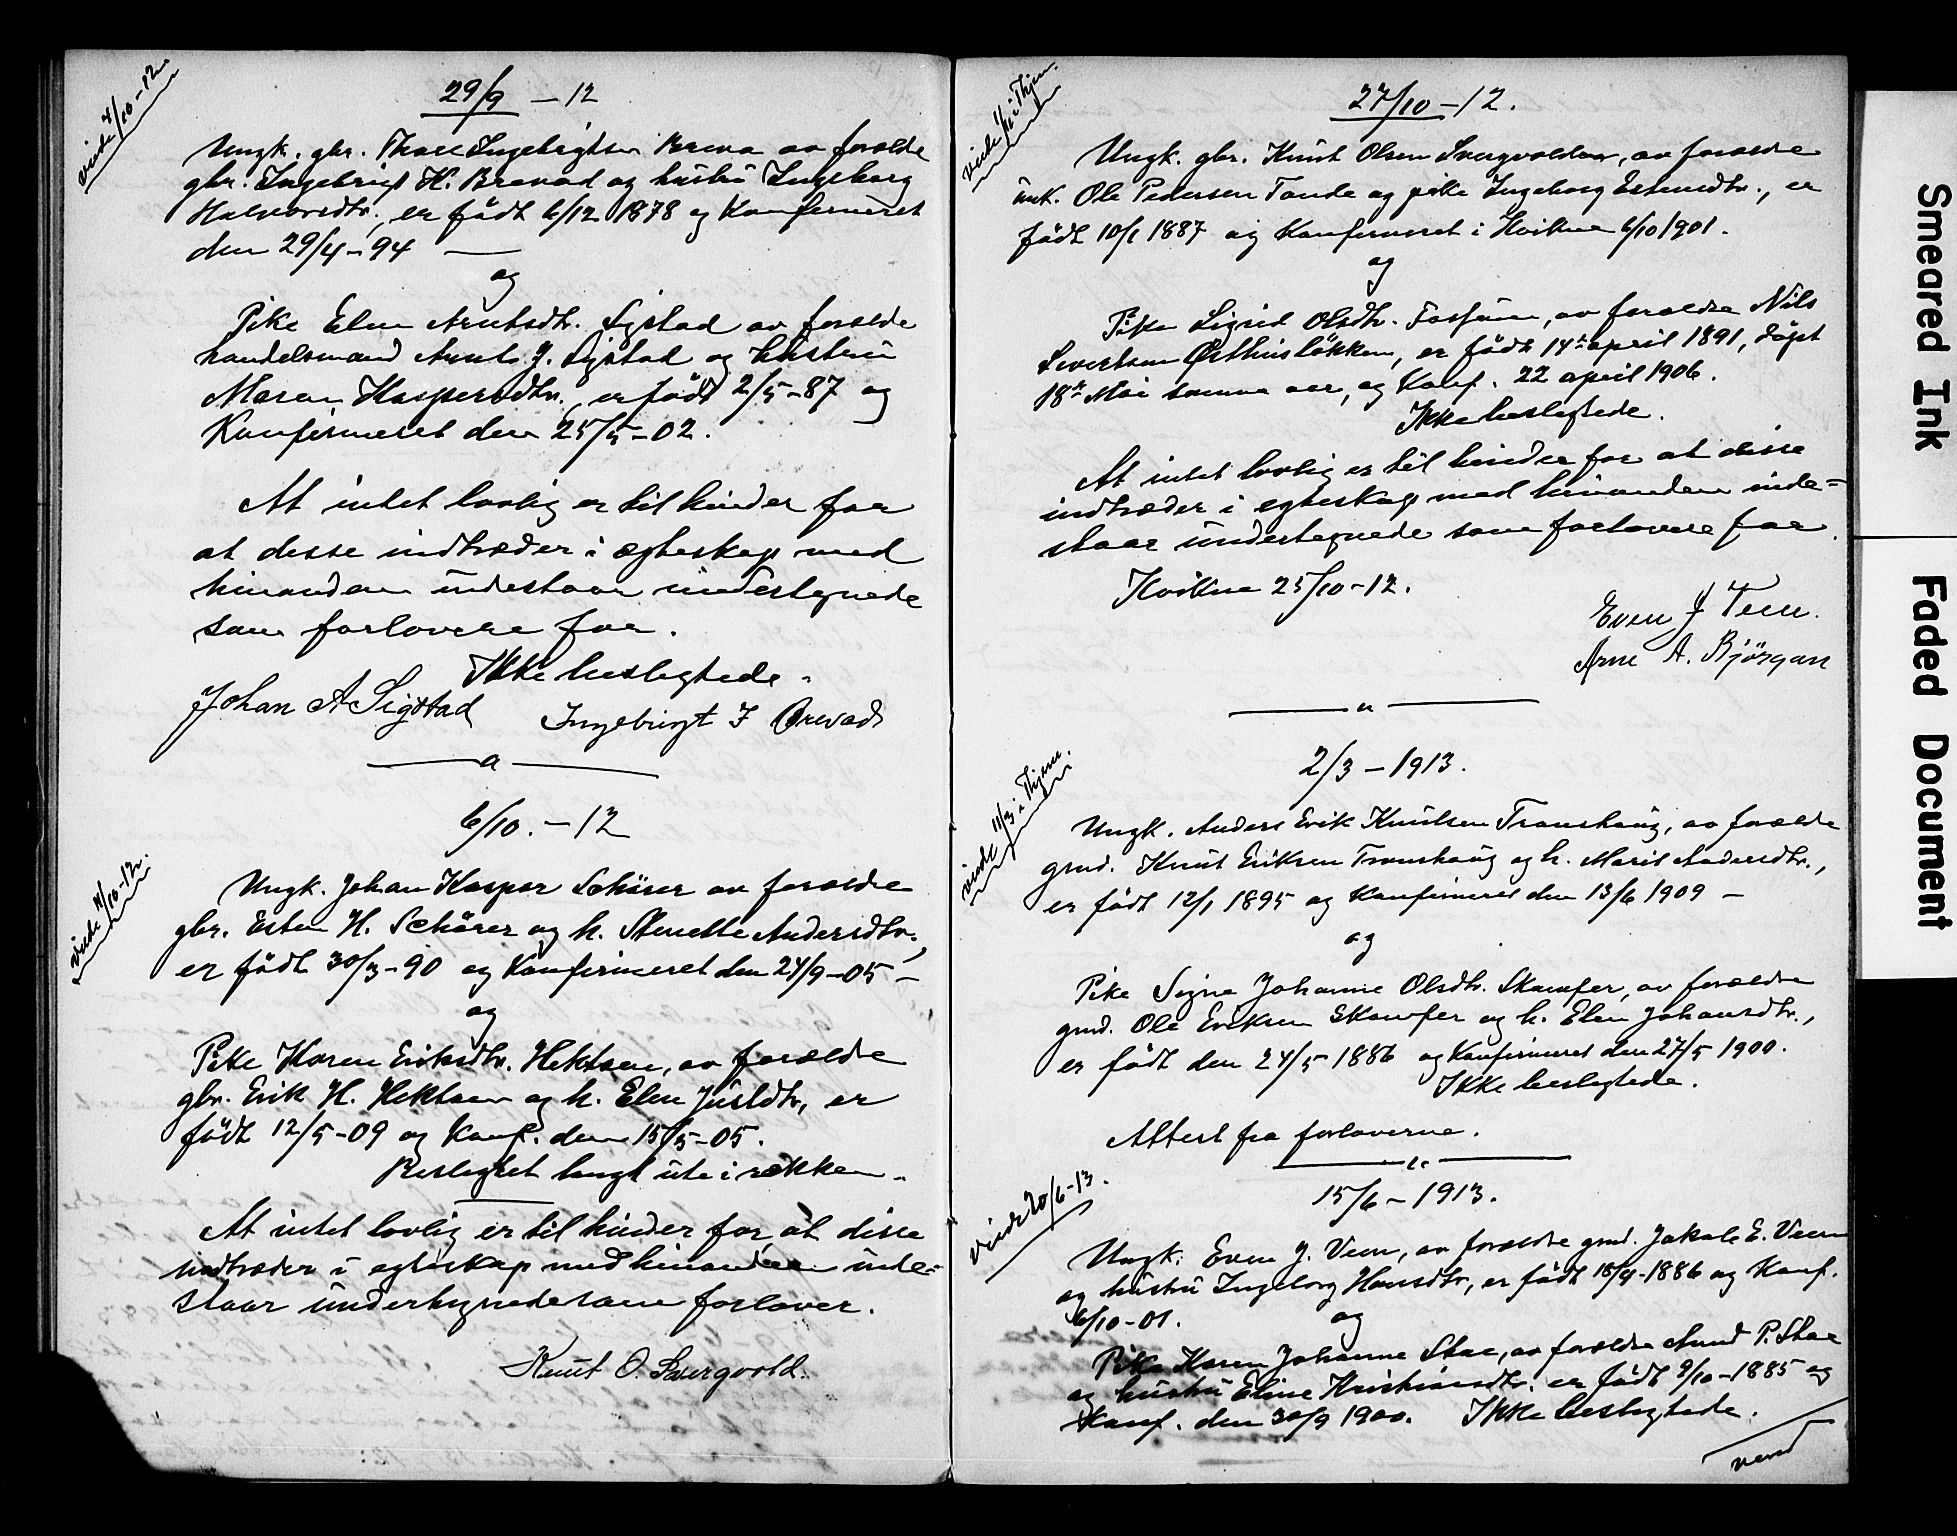 viede 4/10-12.
29/9 - 12
Ungk. gbr. Thore Ingebrigtsen Breva av forældre
gbr. Ingebrigt H. Brevad og hustru Ingeborg
Halvorsdtr., er født 6/12 1878 og Konfirmeret
den 29/4-94 —
og
Pike Elen Arntsdtr. Sigstad av forældre
handelsmand Arnt J. Sigstad og hustru
Maren Kaspersdtr., er født 2/5-87 og
Konfirmeret den 25/5-02.
At intet lovlig er til hinder for
at disse indtræder i ægteskap med
hinanden indestaar undertegnede
som forlovere for.
Ikke beslegtede.
Johan A Sigstad Ingebrigt I Brevad
6/10. - 12
viede 11/10-12.
Ungk. Johan Kaspar Schärer av forældre
gbr. Esten H. Schärer og h. Stenette Andersdtr.,
er født 30/3-90 og Konfirmeret den 24/9-05 -
og
Pike Karen Eriksdtr. Hektoen, av forældre
gbr. Erik H. Hektoen og h. Elen Juuldtr, er
født 12/5-09 og Konf. den 15/5-05.
Beslegtet langt ute i rækken.
At intet lovlig er til hinder for at disse
indtræder i egteskap med hinanden inde=
staar undertegnede som forlover.
Knut O. Svergvold.
viede 1/11 i Thjen.
27/10 - 12.
Ungk. gbr. Knut Olsen Svergvolden, av forældre
unk. Ole Pedersen Tande og pike Ingeborg Estensdtr., er
født 10/1 1887 og Konfirmeret i Kvikne 6/10 1901.
og
Pike Sigrid Olsdtr. Fosseim, av forældre Nils
Sivertsen Østhusløkken, er født 14de april 1891, døpt
18de Mai samme aar, og Konf. 22 april 1906.
Ikke beslegtede.
At intet lovlig er til hinder for at disse
indtræder i egteskap med hinanden inde=
staar undertegnede som forlovere for.
Kvikne 25/10-12.
Even J Veen.
Arne A. Bjørgan
viede 11/3 i Thjen.
2/3 - 1913.
Ungk. Anders Erik Knutsen Tronshaug, av forældre
grnd. Knut Eriksen Tronshaug og h. Marit Andersdtr.,
er født 12/1 1895 og Konfirmeret den 13/6 1909 -
og
Pike Signe Johanne Olsdtr. Skamfer, av forældre
grnd. Ole Eriksen Skamfer og h. Elen Johansdtr.,
er født den 24/5 1886 og Konfirmeret den 27/5 1900.
Ikke beslegtede.
Attest fra forloverne.
viede 20/6-13.
15/6 - 1913.
Ungk. Even J. Veen, av forældre grnd. Jakob E. Veen
og hustru Ingeborg Hansdtr, er født 18/4-1886 og Konf.
6/10-01.
og
Pike Karen Johanne Stae, av forældre Amund P. Stae
og hustru Eline Kristiansdtr. er født 9/10-1885 og
Konf. den 30/9 1900. Ikke beslegtede.
vend
Smeared Ink
Faded Document